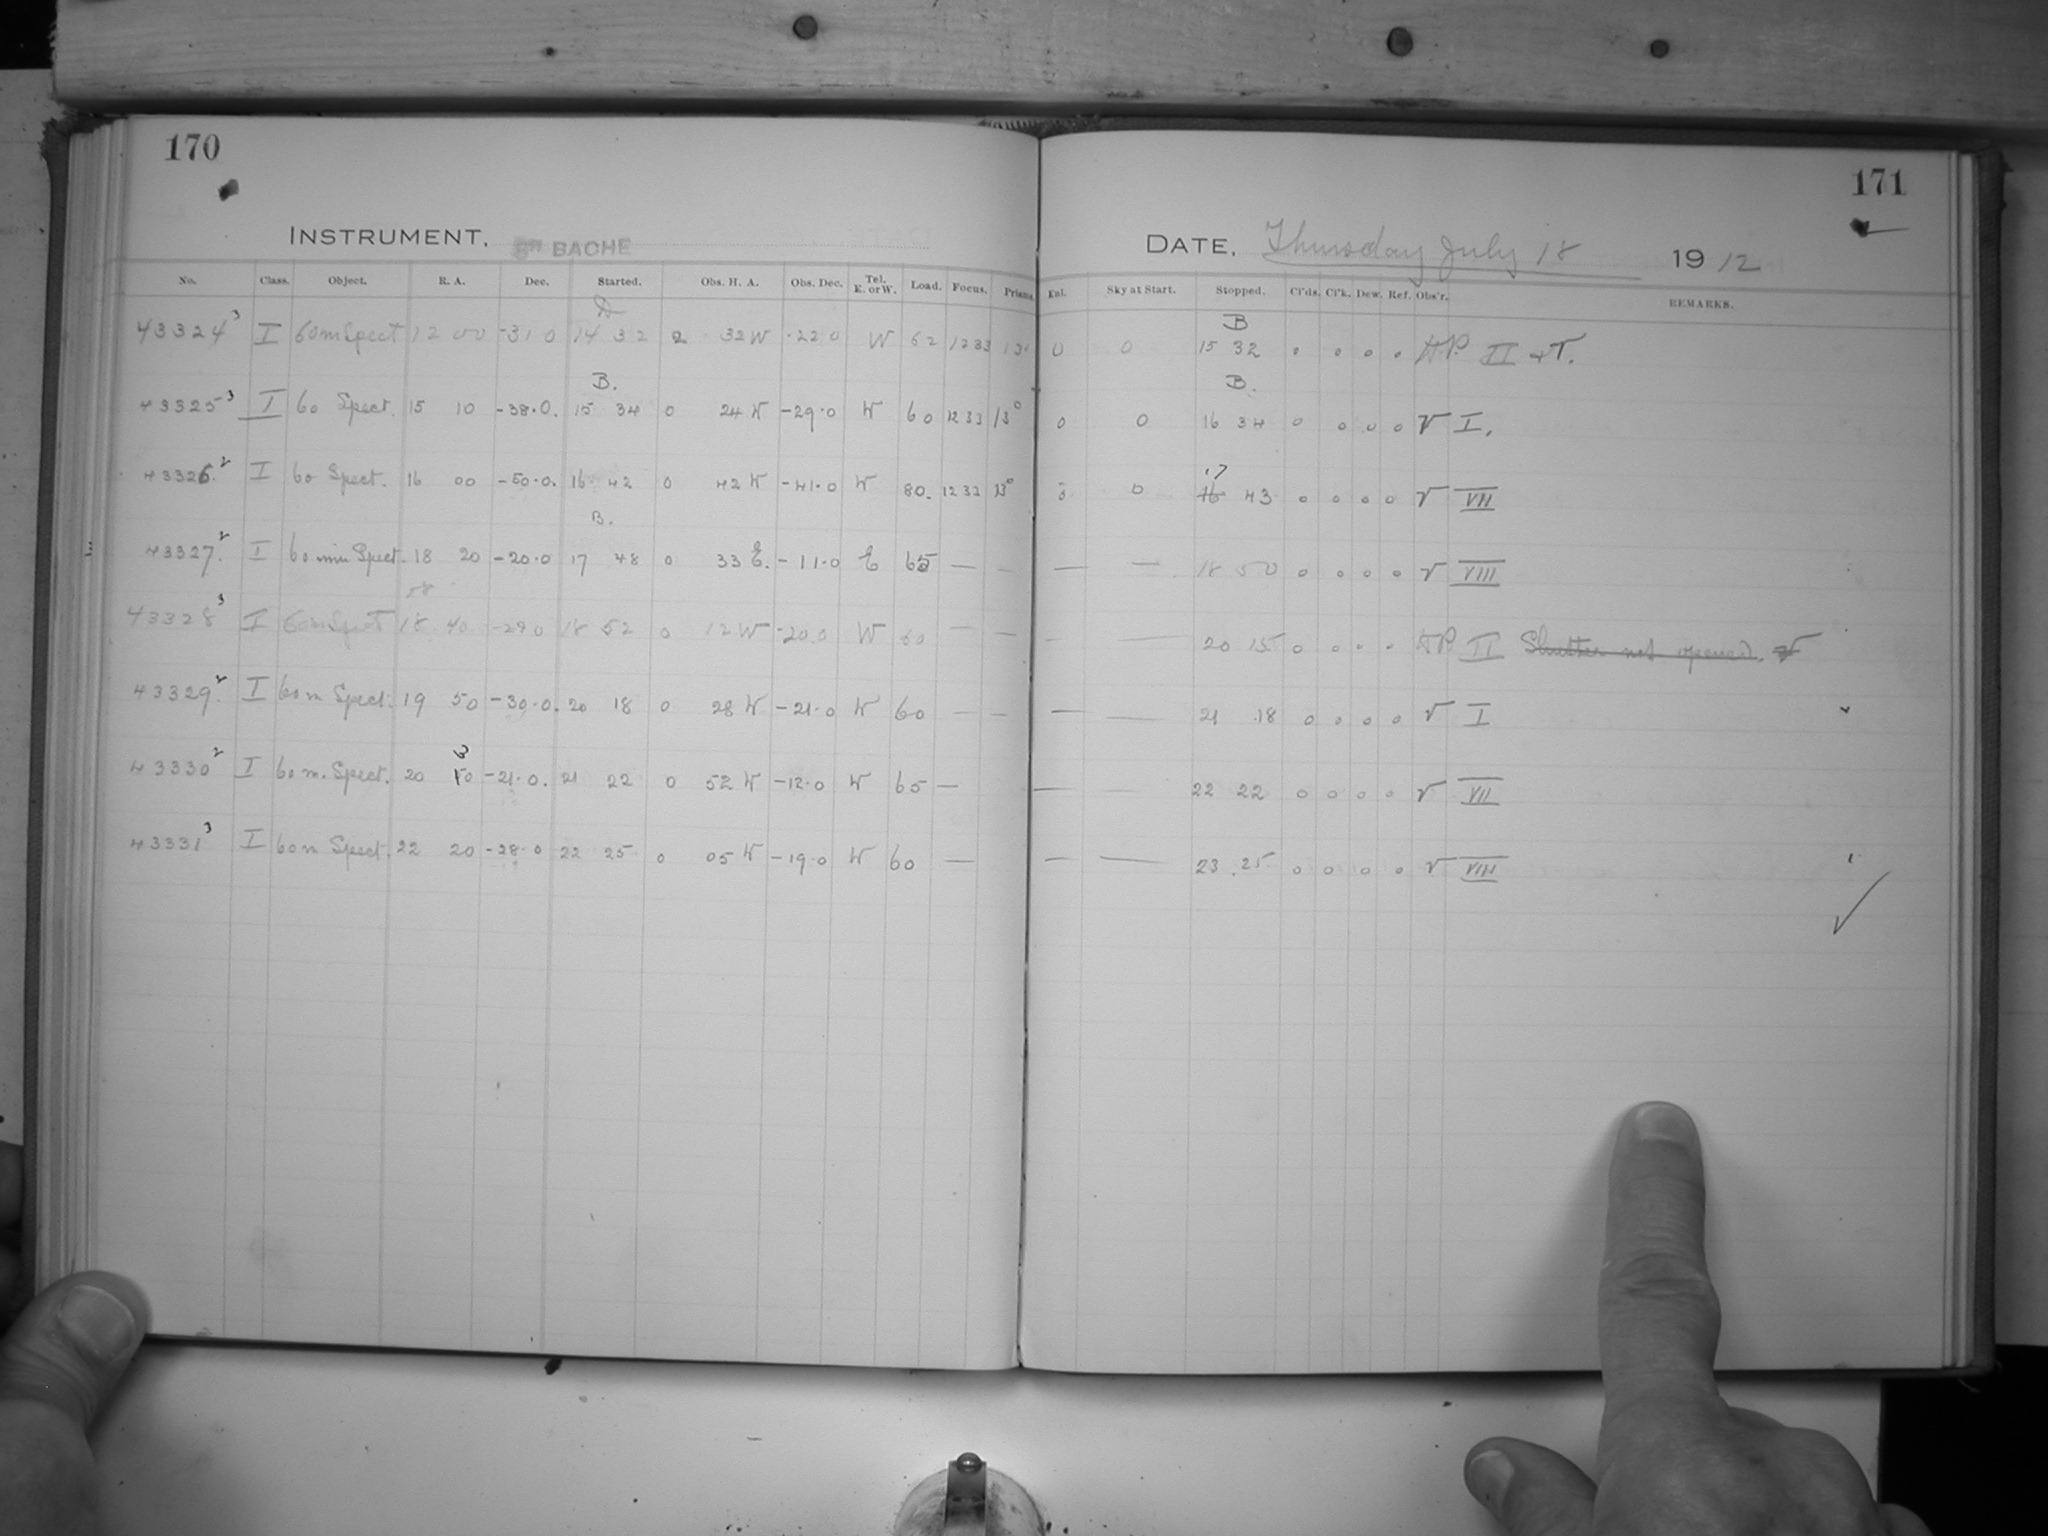 170
171
INSTRUMENT. 8IN BACHE
DATE. Thursday July 18 1912
No. Class. Object. R. A. Dec. Started. Obs. H. A. Obs. Dec. Tel. E. or W. Load. Focus. Prism. Enl. Sky at Start. Stopped. Cl'ds. Cl'k. Dew. Ref. Obs'r. REMARKS.
B
43324 3 I 60m Spect 12 00 -31 0 14 32 2 32 W -22 0 W 62 1233 13° 0 0 15 32 0 0 0 0 II + T.
B. B.
43325 3 I 60 Spect. 15 10 -38.0. 15 34 0 24 W -29.0 W 60 1233 13° 0 0 16 34 0 0 0 0 V I.
17
43326 2 I 60 Spect. 16 00 -50.0. 16 42 0 42 W -41.0 W 80. 1232 13° 0 0 16 43 0 0 0 0 V VII
B.
43327. 2 I 60 min Spect. 18 20 -20.0 17 48 0 33 E. -11.0 E 65 — — — — 18 50 0 0 0 0 V VIII
43328 3 I 60m Spect 18 40 -29 0 18 52 0 12 W -20.0 W 60 — — — — 20 15 0 0 0 0 II Shutter not opened. V
43329. 2 I 60 m Spect. 19 50 -30.0. 20 18 0 28 W -21.0 W 60 — — — — 21 18 0 0 0 0 V I
3
43330 2 I 60 m. Spect. 20 10 -21.0. 21 22 0 52 W -12.0 W 65 — — — 22 22 0 0 0 0 V VII
43331 3 I 60 m Spect. 22 20 -28.0 22 25 0 05 W -19.0 W 60 — — — 23 25 0 0 0 0 V VIII